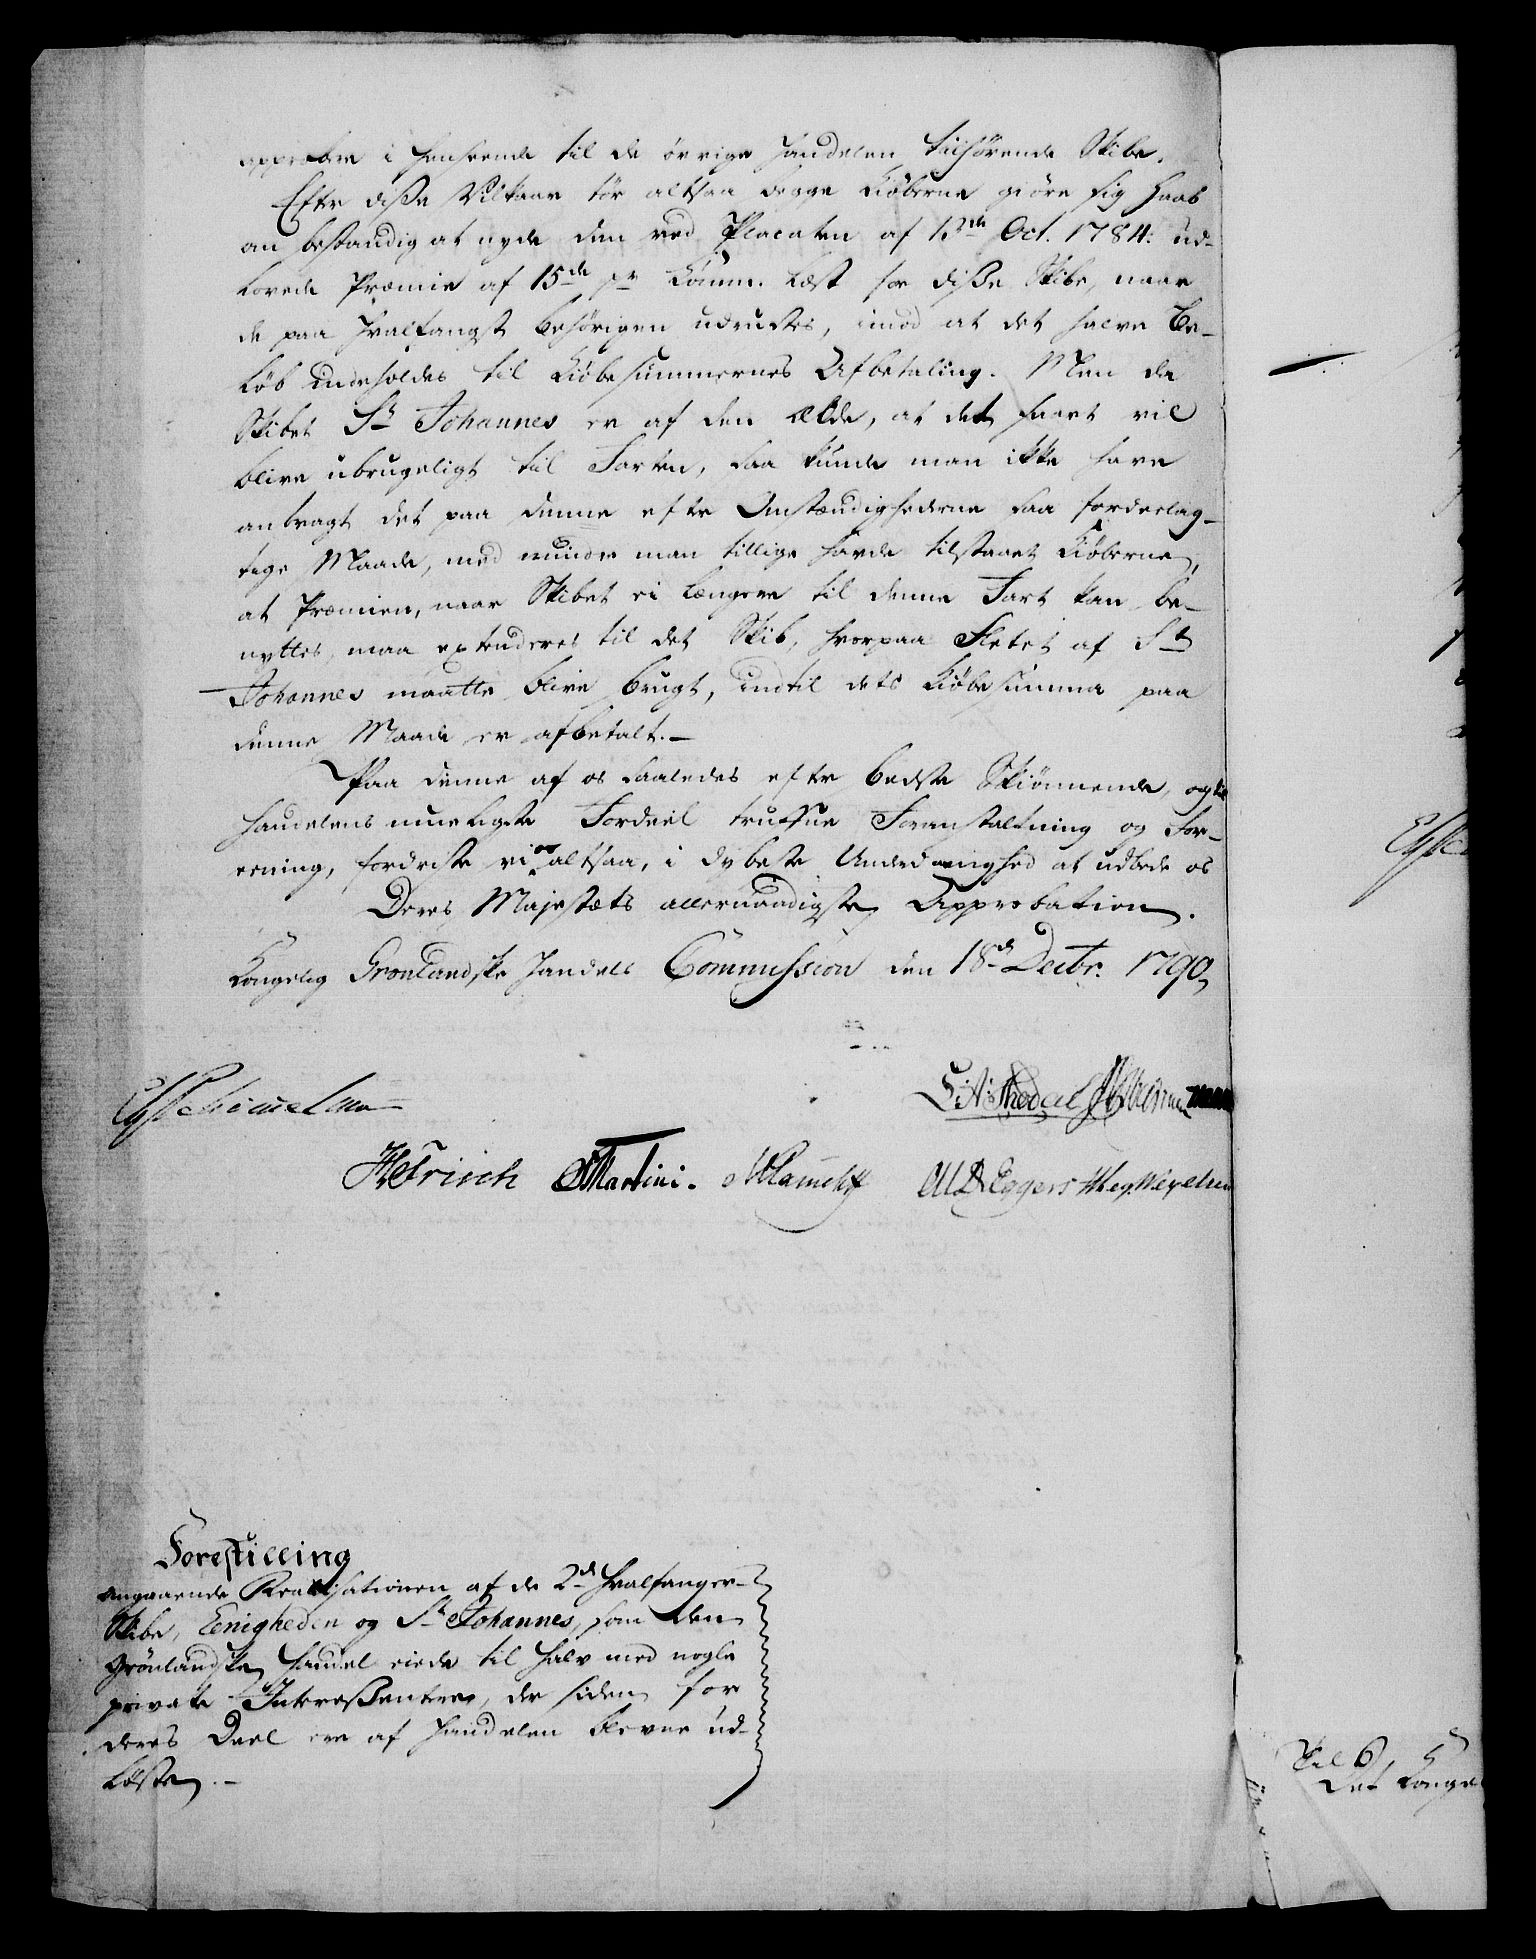 approbere i Henseende til de övrige Handelen tilhörende Skibe.
Efter disse Vilkaar tör altsaa begge Kiöberne giöre sig Haab
om bestandig at nyde den ved Placaten af Oct. 1784: ud-
lovede Præmie af 15de pr Comm. Læst for disse Skibe, naar
de paa Hvalfangst behörigen udrustes, imod at det halve Be-
löb indeholdes til Kiöbesummernes Afbetaling. Men da
Skibet St Johannes er af den Ælde, at det snart vil
blive ubrugeligt til Farten, saa kunde man ikke have
anbragt det paa denne efter Omstændighederne saa fordeelag-
tige Maade, med mindre man tillige havde tilstaaet Kiöberne,
at Præmien, naar Skibet ei længere til denne Fart kan be-
nyttes, maa extenderes til det Skib, hvorpaa Fletet af St
Johannes maatte blive brugt, indtil dets Kiöbesumma paa
denne Maade er afbetalt.-
Paa denne af os saaledes efter bedste Skiönnende, og til
Handelens mueligste Fordeel trufne Foranstaltning og For-
eening, fordriste vi os altsaa, i dybeste Underdanighed at udbede os
Deres Majestæts allernaadigste Approbation.
Kongelig Grönlandske Handels Commission den 18de Decbr. 1790,
Schimmelmann
Thodal
Frisch Martini. Eggers Wexelsen
Forestilling
angaaende Realisationen af de 2de Hvalfanger-
Skibe, Eenigheden og St Johannes, som den
Grönlandske Handel eiede til Halv med nogle
private Interessentere, der siden for
deres Deel ere af Handelen blevne ud-
löste.-
Det Konge